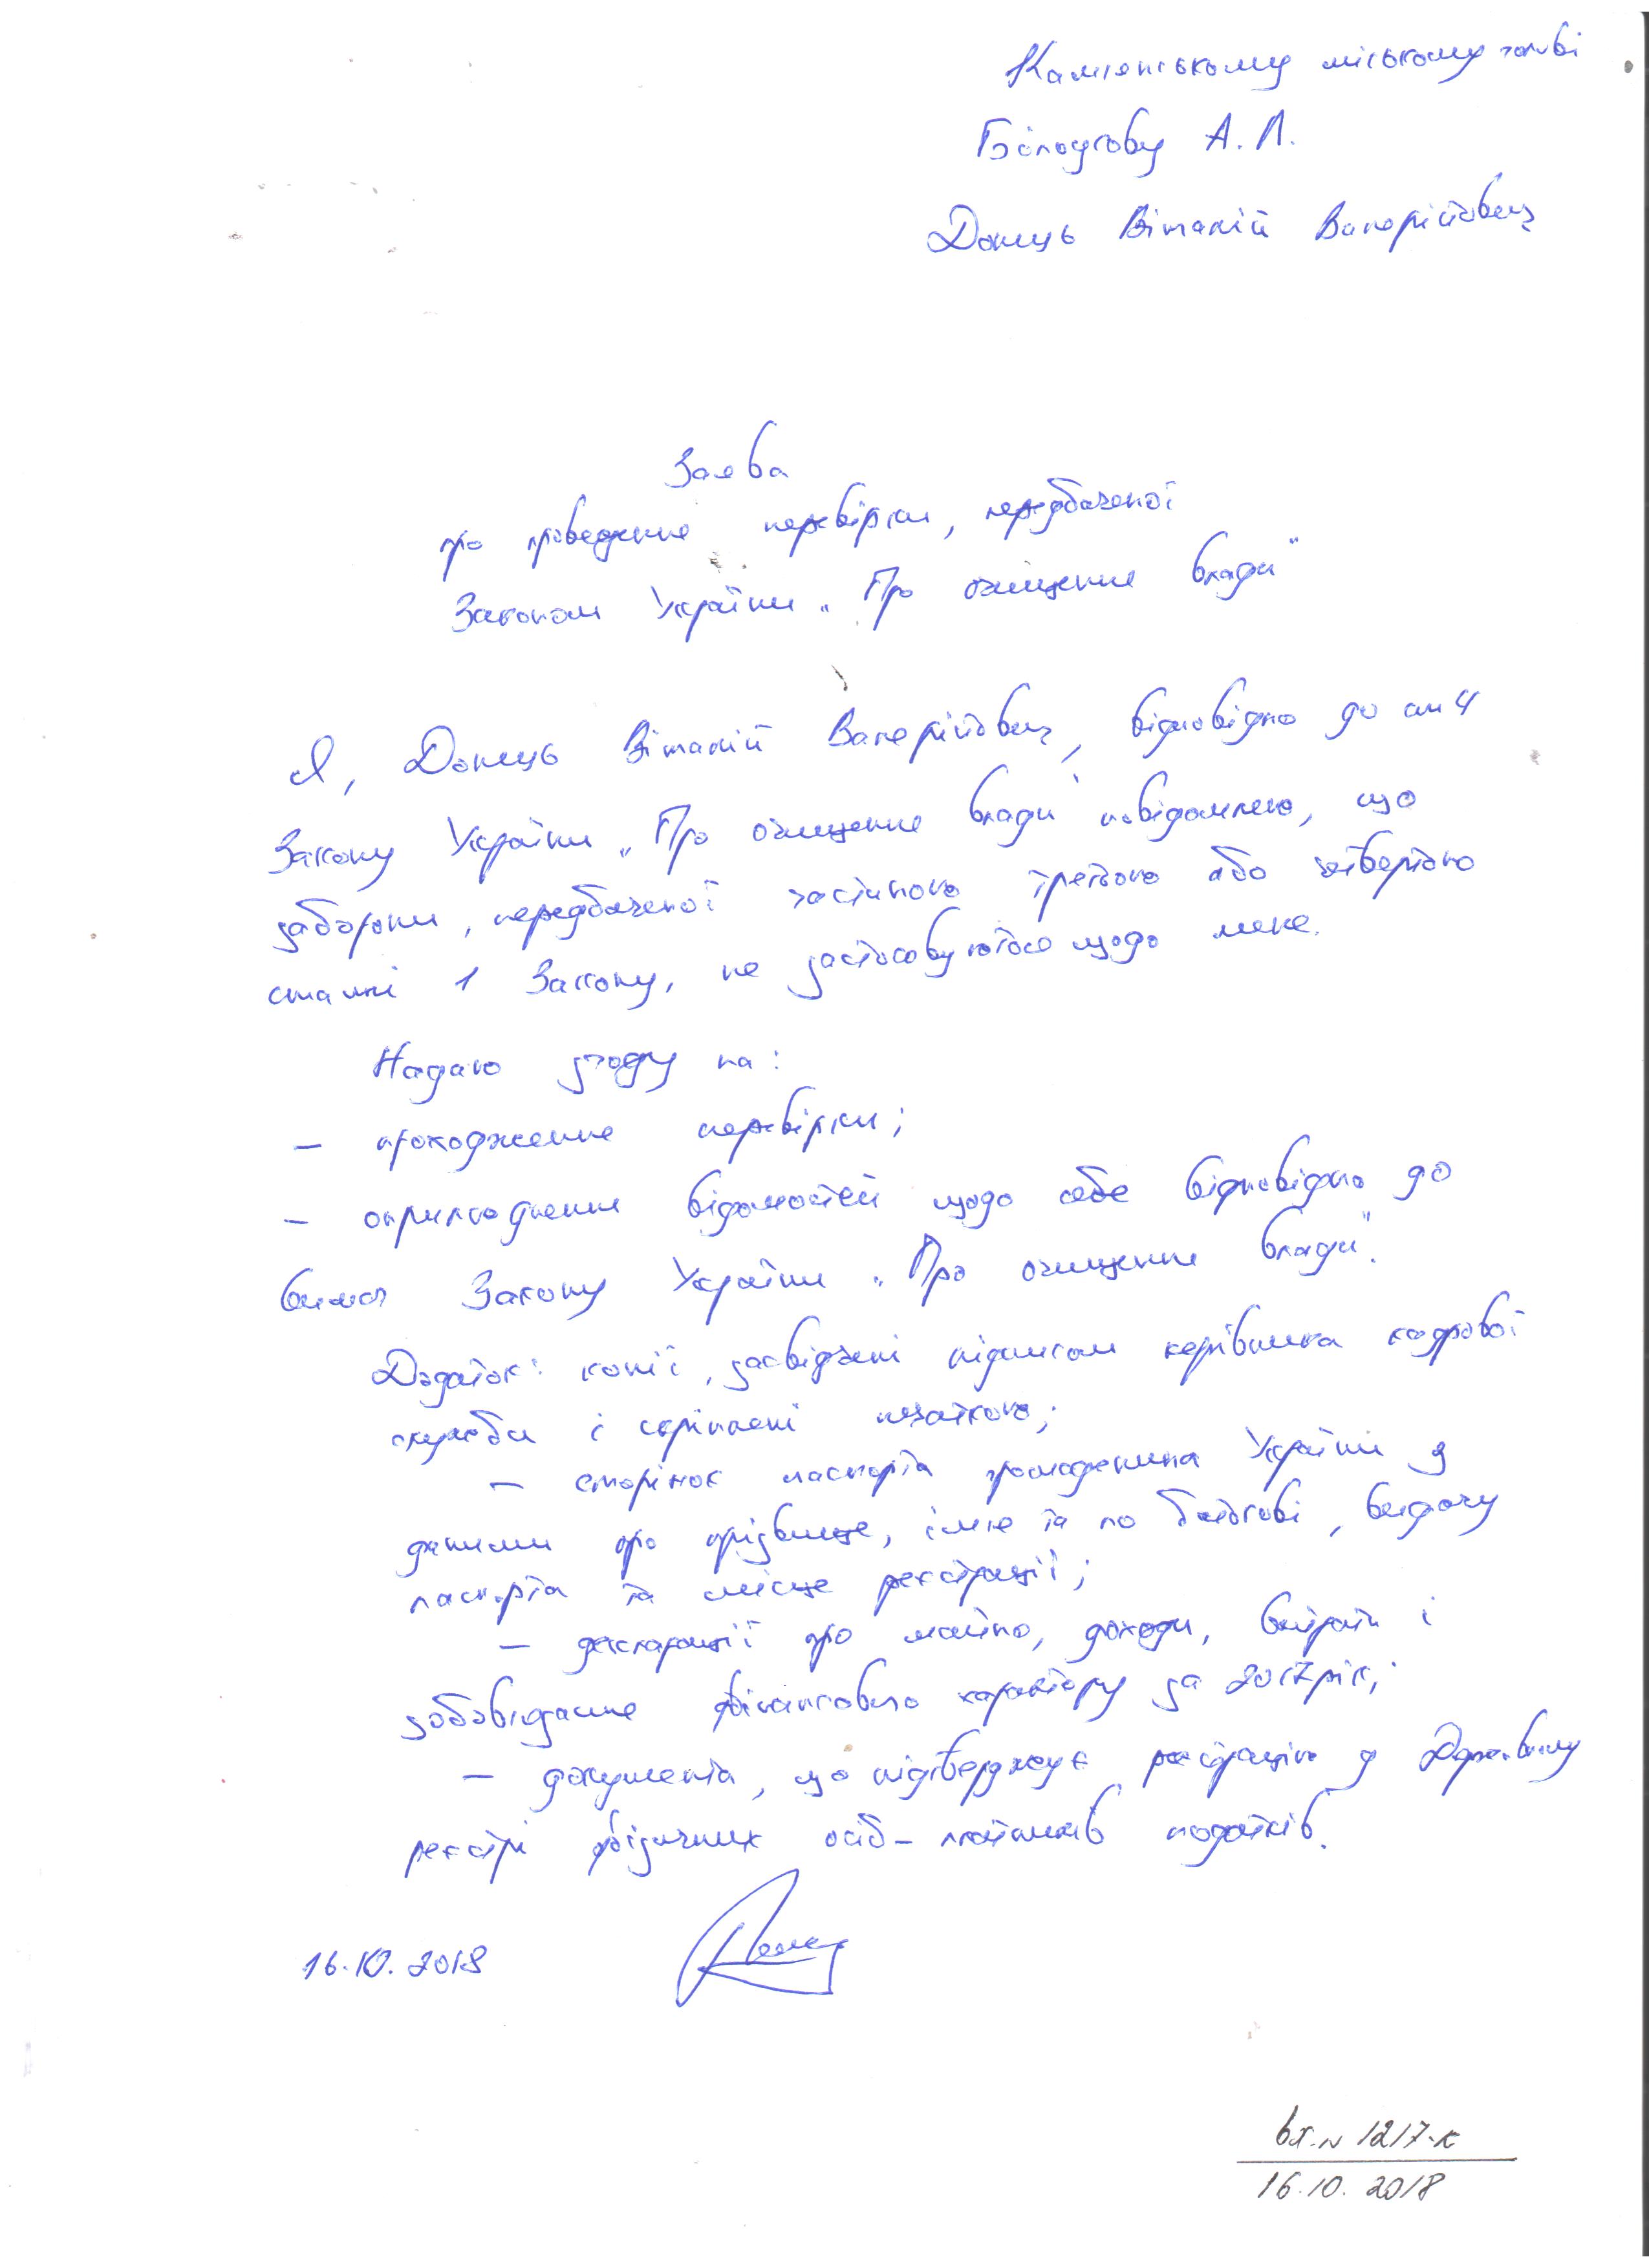 Камʼянському міському голові
Білоусову А.Л.
Донець Віталій Валерійович
Заява
про проведення перевірки, передбаченої
Законом України „Про очищення влади"
Я, Донець Віталій Валерійович, відповідно до ст 4
Закону України „Про очищення влади" повідомляю, що
заборони, передбаченої частиною третьою або четвертою
статті 1 Закону, не застосовуються щодо мене.
Надаю згоду на:
– проходження перевірки;
– оприлюднення відомостей щодо себе відповідно до
вимог Закону України „Про очищення влади".
Додаток: копії, засвідчені підписом керівника кадрової
служби і скріплені печаткою;
– сторінок паспорта громадянина України з
даними про прізвище, імʼя та по батькові, видачу
паспорта та місце реєстрації;
– декларації про майно, доходи, витрати і
зобовʼязання фінансового характеру за 2017 рік;
– документа, що підтверджує реєстрацію у Державному
реєстрі фізичних осіб – платників податків.
16.10.2018
вх.№ 1217-к
16.10.2018